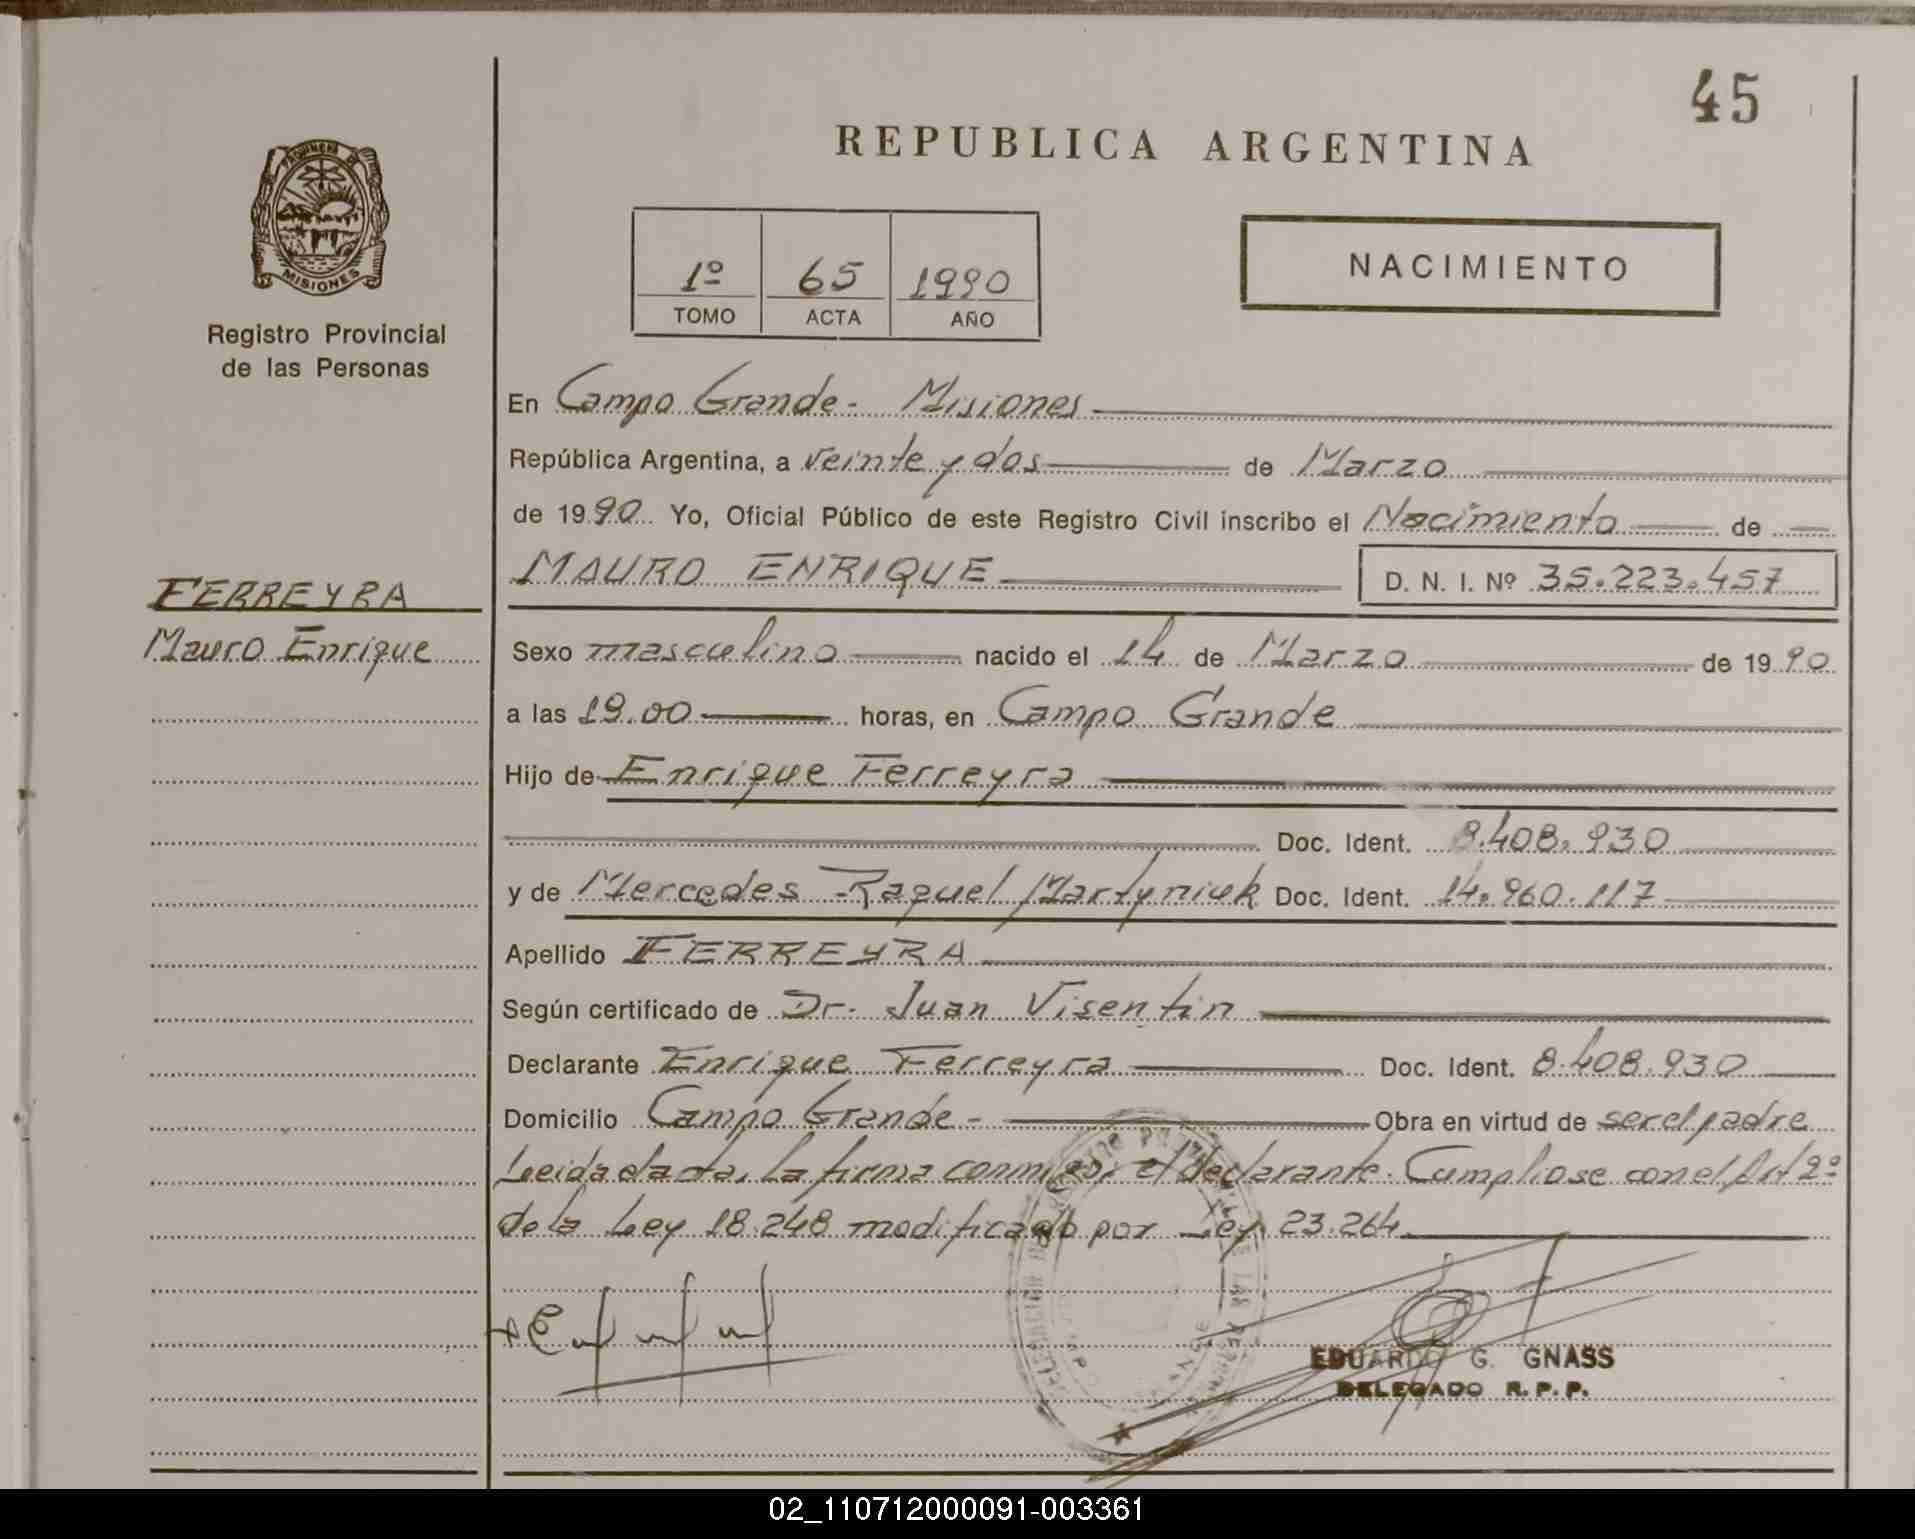 45
REPUBLICA ARGENTINA
PROVINCIA DE
MISIONES
Registro Provincial
de las Personas
1º 65 1990
TOMO ACTA AÑO
NACIMIENTO
En Campo Grande - Misiones
República Argentina, a veinte y dos de Marzo
de 1990. Yo, Oficial Público de este Registro Civil inscribo el Nacimiento de
MAURO ENRIQUE D. N. I. Nº 35.223.457
FERREYRA
Mauro Enrique
Sexo masculino nacido el 14 de Marzo de 1990
a las 19.00 horas, en Campo Grande
Hijo de Enrique Ferreyra
Doc. Ident. 8.408.930
y de Mercedes Raquel Martyniuk Doc. Ident. 14.960.117
Apellido FERREYRA
Según certificado de Dr. Juan Visentin
Declarante Enrique Ferreyra Doc. Ident. 8.408.930
Domicilio Campo Grande - Obra en virtud de ser el padre
Leida el acta, la firma conmigo, el declarante. Cumpliose con el Art 2º
de la Ley 18.248 modificado por Ley 23.264
EDUARDO G. GNASS
DELEGADO R. P. P.
02_110712000091-003361